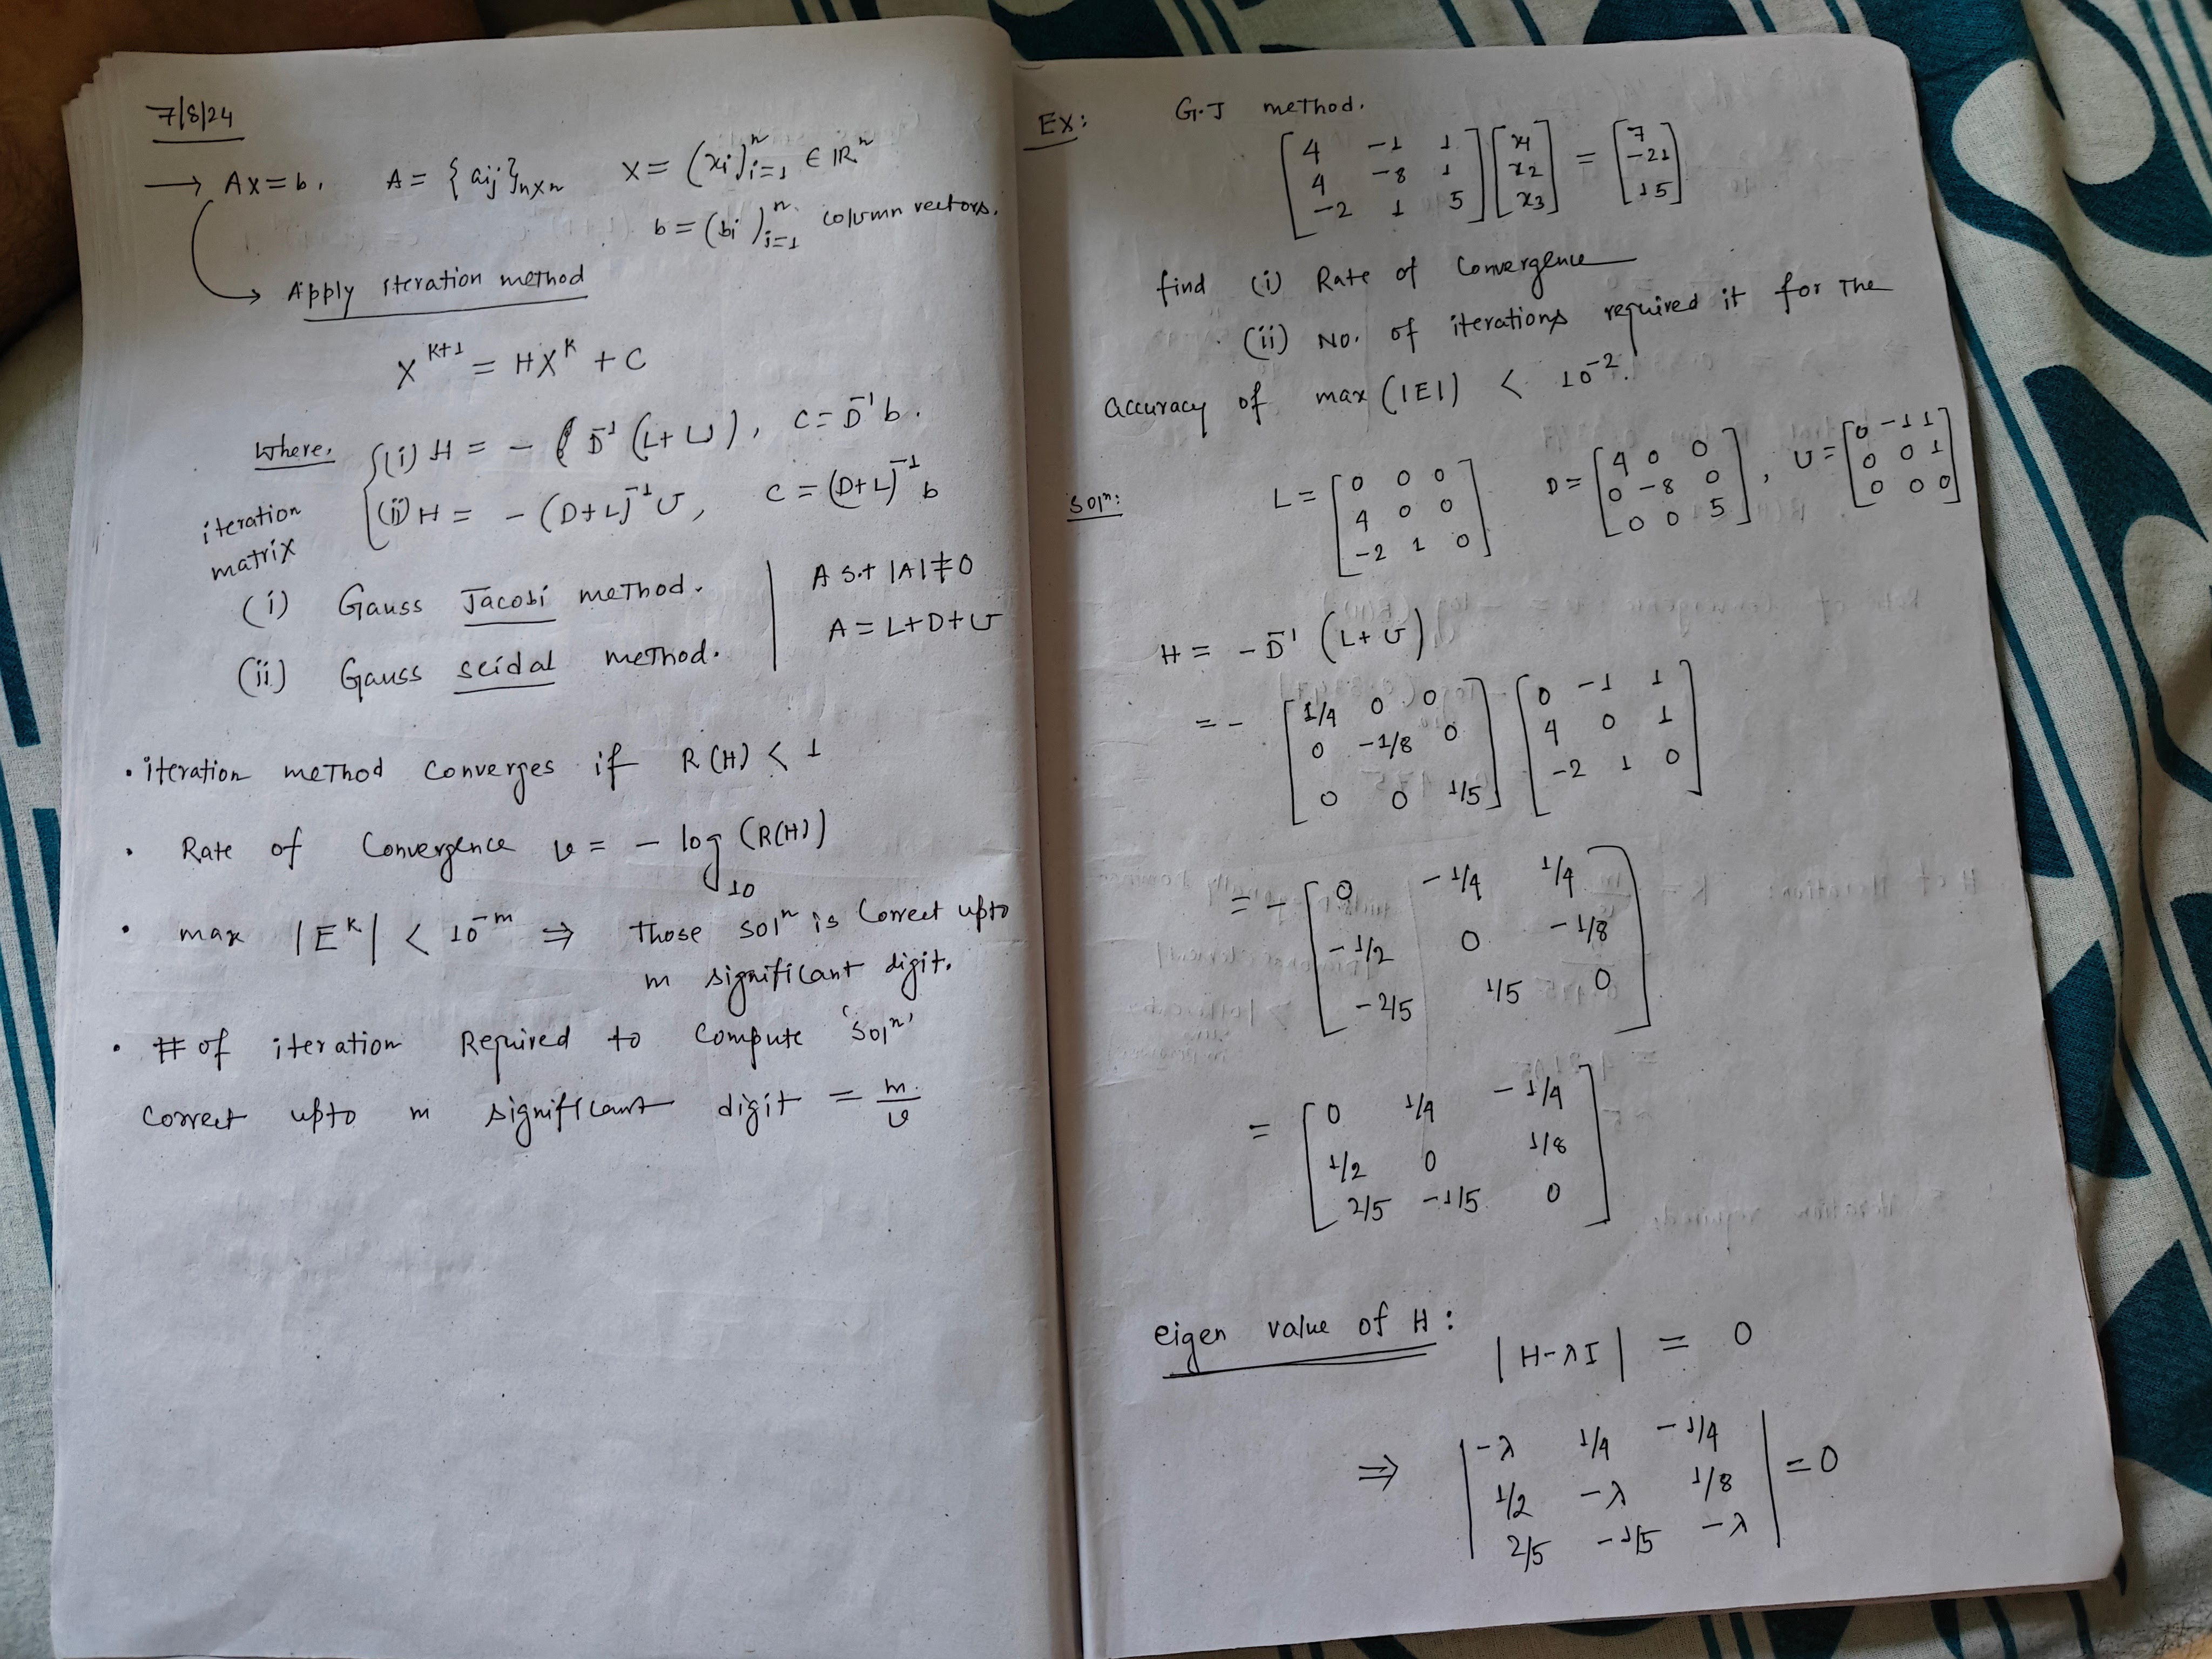 7/8/24
→ Ax=b, A = {aij}nxn X = (xi)ⁿi=1 ∈ IRⁿ
b = (bi)ⁿi=1 column vectors.
→ Apply iteration method
X^K+1 = HX^K + C
Where, (i) H = - D⁻¹ (L+U), C = D⁻¹ b.
iteration matrix (ii) H = - (D+L)⁻¹ U, C = (D+L)⁻¹ b
(i) Gauss Jacobi method. | A s.t |A| ≠ 0
(ii) Gauss seidal method. | A = L+D+U
• iteration method converges if R(H) < 1
• Rate of Convergence υ = - log₁₀ (R(H))
• max |E^K| < 10^-m ⇒ Those solⁿ is correct upto
m significant digit.
• # of iteration Required to compute 'solⁿ'
correct upto m significant digit = m/υ
EX: G.J method.
[4 -1 1] [x1] = [7]
[4 -8 1] [x2] [-21]
[-2 1 5] [x3] [15]
find (i) Rate of Convergence
(ii) No. of iterations required it for The
accuracy of max (|E|) < 10⁻².
Solⁿ: L = [0 0 0 D = [4 0 0 , U = [0 -1 1
4 0 0 0 -8 0 0 0 1
-2 1 0] 0 0 5] 0 0 0]
H = - D⁻¹ (L+U)
= - [1/4 0 0] [0 -1 1]
[0 -1/8 0] [4 0 1]
[0 0 1/5] [-2 1 0]
= - [0 -1/4 1/4]
[-1/2 0 -1/8]
[-2/5 1/5 0]
= [0 1/4 -1/4]
[1/2 0 1/8]
[2/5 -1/5 0]
eigen value of H: |H-λI| = 0
⇒ |-λ 1/4 -1/4| = 0
|1/2 -λ 1/8|
|2/5 -1/5 -λ|